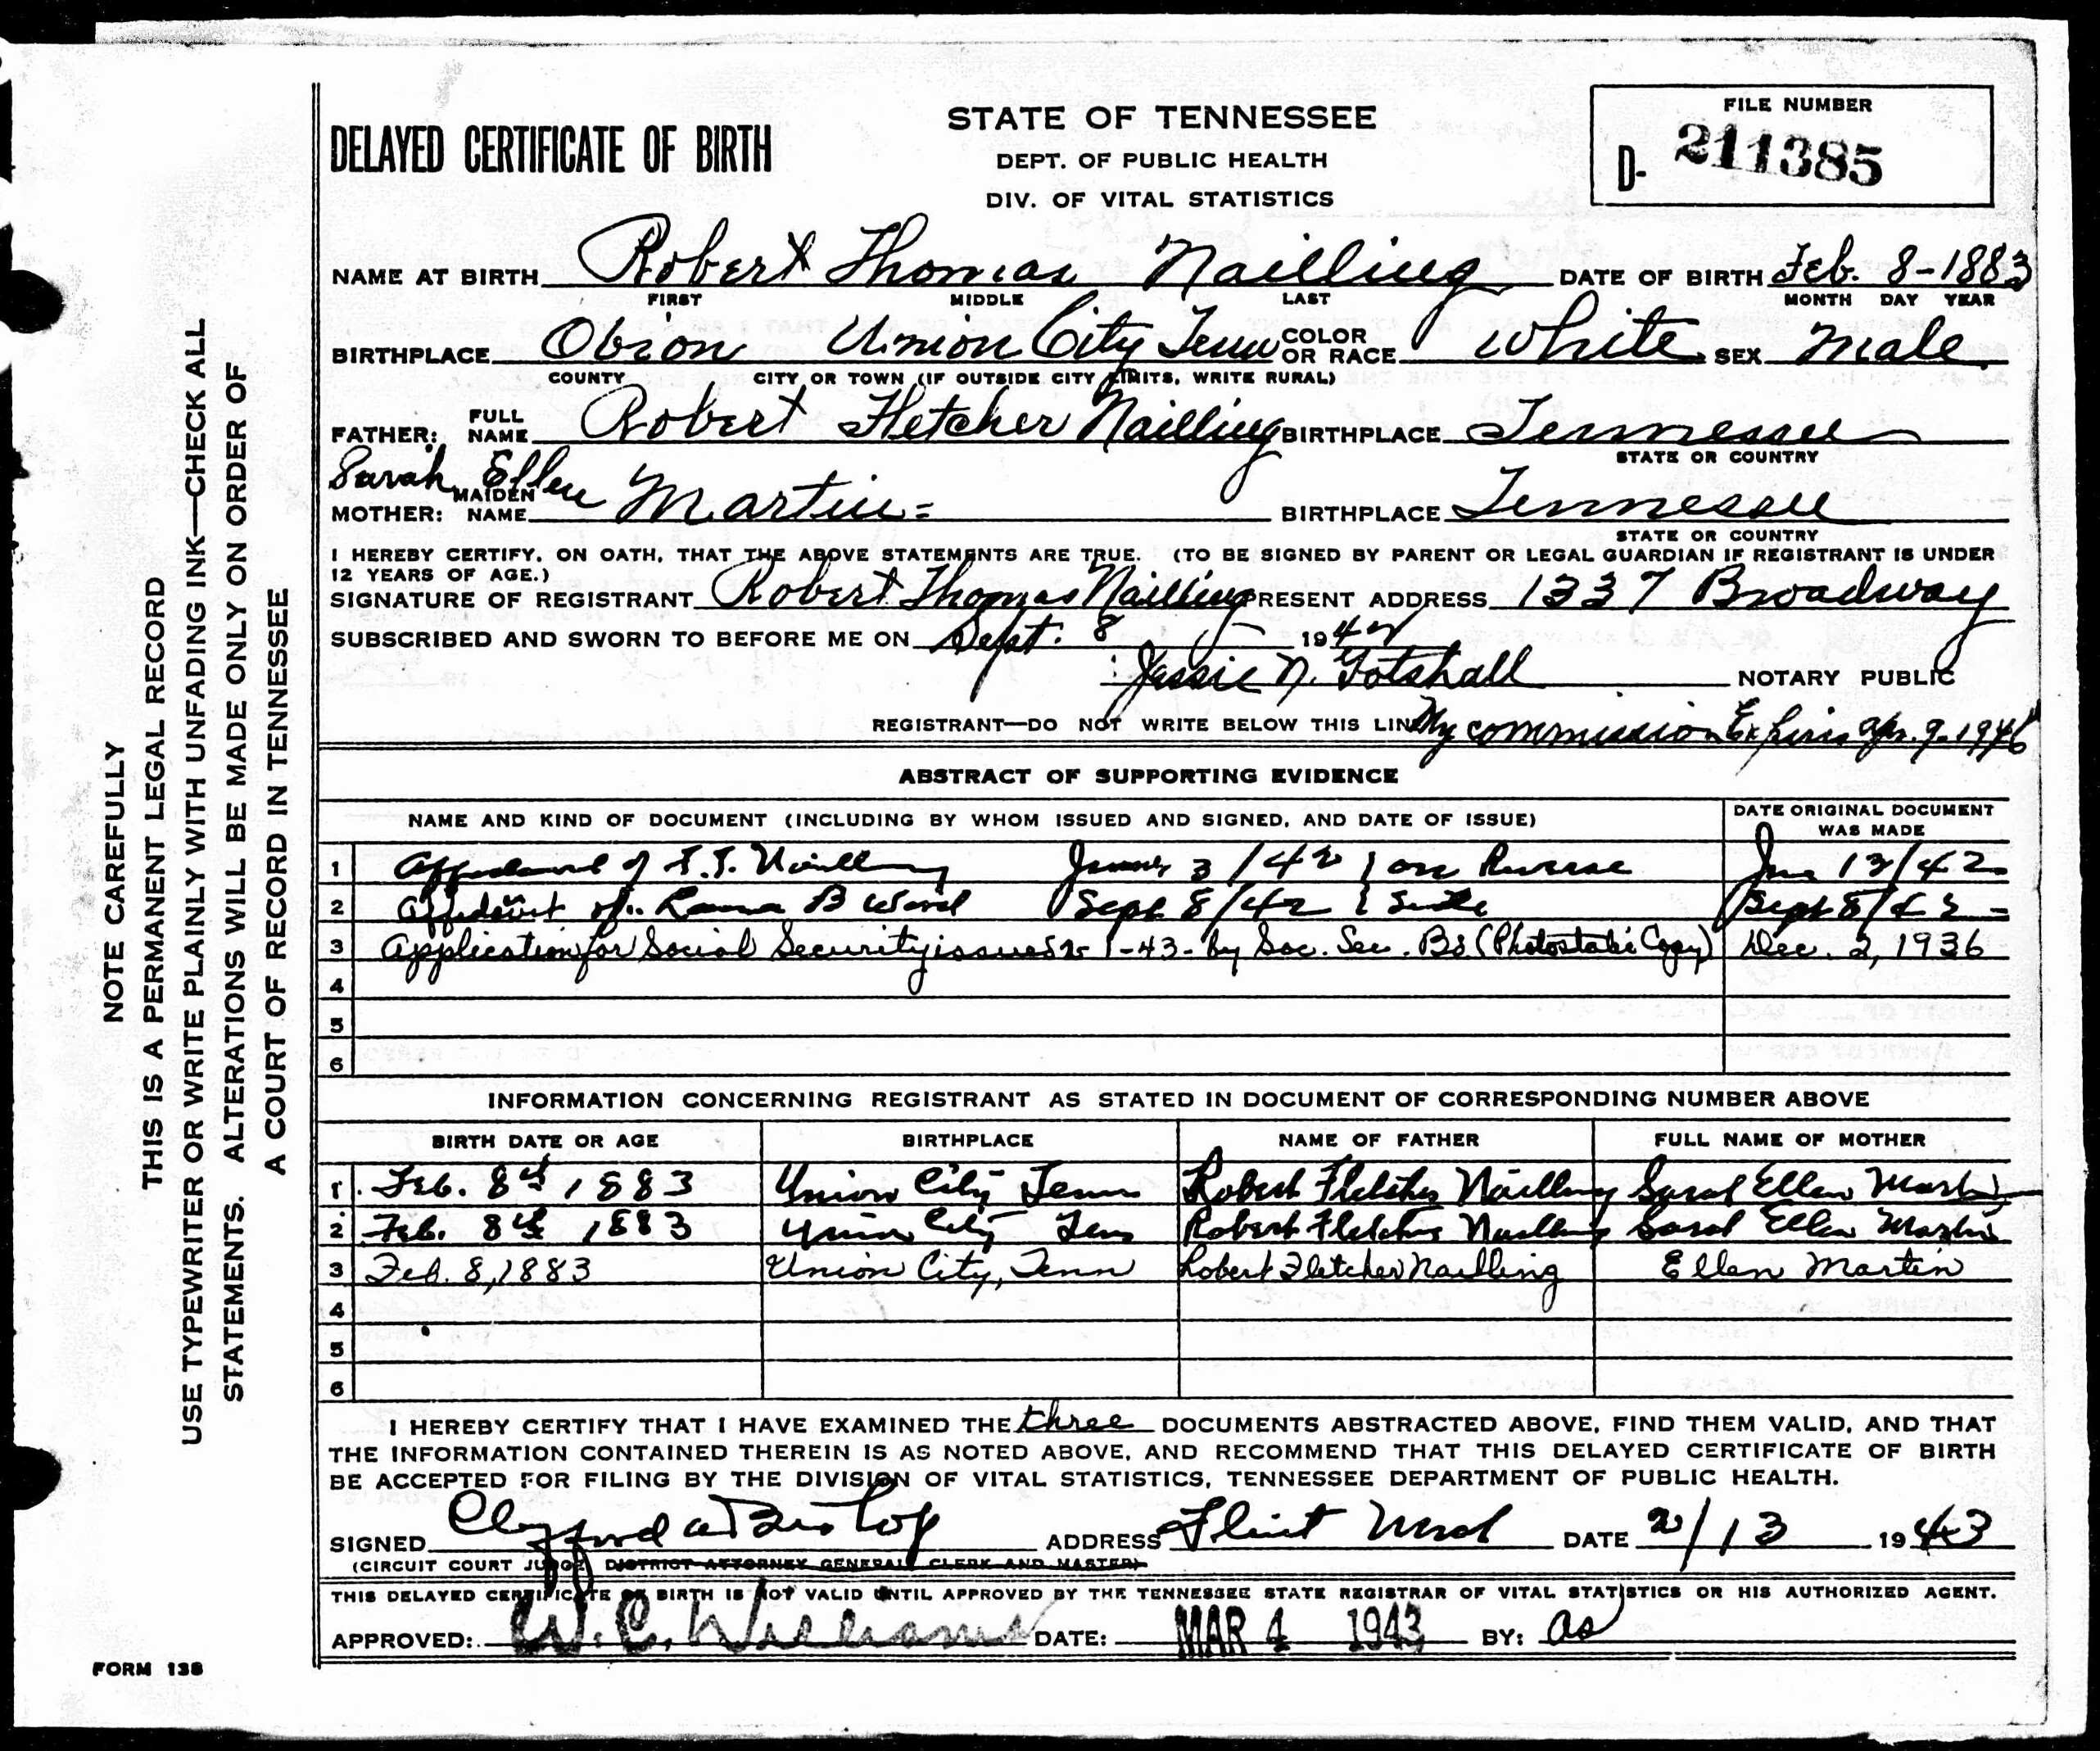 DELAYED CERTIFICATE OF BIRTH
STATE OF TENNESSEE
DEPT. OF PUBLIC HEALTH
DIV. OF VITAL STATISTICS
FILE NUMBER
D- 211385
NAME AT BIRTH Robert Thomas Nailling DATE OF BIRTH Feb. 8-1883
FIRST MIDDLE LAST MONTH DAY YEAR
BIRTHPLACE Obion Union City Tenn COLOR OR RACE White SEX Male
COUNTY CITY OR TOWN (IF OUTSIDE CITY LIMITS, WRITE RURAL)
FATHER: FULL NAME Robert Fletcher Nailling BIRTHPLACE Tennessee
STATE OR COUNTRY
Sarah Ellen
MOTHER: MAIDEN NAME Martin BIRTHPLACE Tennessee
STATE OR COUNTRY
I HEREBY CERTIFY, ON OATH, THAT THE ABOVE STATEMENTS ARE TRUE. (TO BE SIGNED BY PARENT OR LEGAL GUARDIAN IF REGISTRANT IS UNDER
12 YEARS OF AGE.)
SIGNATURE OF REGISTRANT Robert Thomas Nailling PRESENT ADDRESS 1337 Broadway
SUBSCRIBED AND SWORN TO BEFORE ME ON Sept. 8 1942
Jessie N. Gotshall NOTARY PUBLIC
REGISTRANT—DO NOT WRITE BELOW THIS LINE My commission Expires Apr. 9-1946
ABSTRACT OF SUPPORTING EVIDENCE
NAME AND KIND OF DOCUMENT (INCLUDING BY WHOM ISSUED AND SIGNED, AND DATE OF ISSUE) DATE ORIGINAL DOCUMENT WAS MADE
1 Affidavit of Nailling 3/42 on Reverse 13/42
2 Affidavit of B Ward Sept 8/42 Side Sept 8/42
3 Application for Social Security issued 2-1-43- by Soc. Sec. Bd. (Photostatic Copy) Dec. 2, 1936
4
5
6
INFORMATION CONCERNING REGISTRANT AS STATED IN DOCUMENT OF CORRESPONDING NUMBER ABOVE
BIRTH DATE OR AGE BIRTHPLACE NAME OF FATHER FULL NAME OF MOTHER
1 Feb. 8th 1883 Union City Tenn Robert Fletcher Nailling Sarah Ellen Martin
2 Feb. 8th 1883 Union City Tenn Robert Fletcher Nailling Sarah Ellen Martin
3 Feb. 8, 1883 Union City, Tenn Robert Fletcher Nailling Ellen Martin
4
5
6
I HEREBY CERTIFY THAT I HAVE EXAMINED THE three DOCUMENTS ABSTRACTED ABOVE, FIND THEM VALID, AND THAT
THE INFORMATION CONTAINED THEREIN IS AS NOTED ABOVE, AND RECOMMEND THAT THIS DELAYED CERTIFICATE OF BIRTH
BE ACCEPTED FOR FILING BY THE DIVISION OF VITAL STATISTICS, TENNESSEE DEPARTMENT OF PUBLIC HEALTH.
SIGNED Clifford A Bishop ADDRESS Flint Mich DATE 2/13 1943
(CIRCUIT COURT JUDGE, DISTRICT ATTORNEY GENERAL, CLERK AND MASTER)
THIS DELAYED CERTIFICATE OF BIRTH IS NOT VALID UNTIL APPROVED BY THE TENNESSEE STATE REGISTRAR OF VITAL STATISTICS OR HIS AUTHORIZED AGENT.
APPROVED: W. C. Williams DATE: MAR 4 1943 BY: as
FORM 138
NOTE CAREFULLY
THIS IS A PERMANENT LEGAL RECORD
USE TYPEWRITER OR WRITE PLAINLY WITH UNFADING INK—CHECK ALL
STATEMENTS. ALTERATIONS WILL BE MADE ONLY ON ORDER OF
A COURT OF RECORD IN TENNESSEE